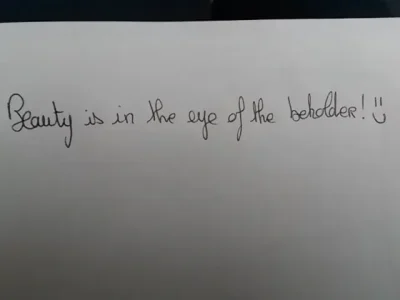 Beauty is in the eye of the beholder! :)